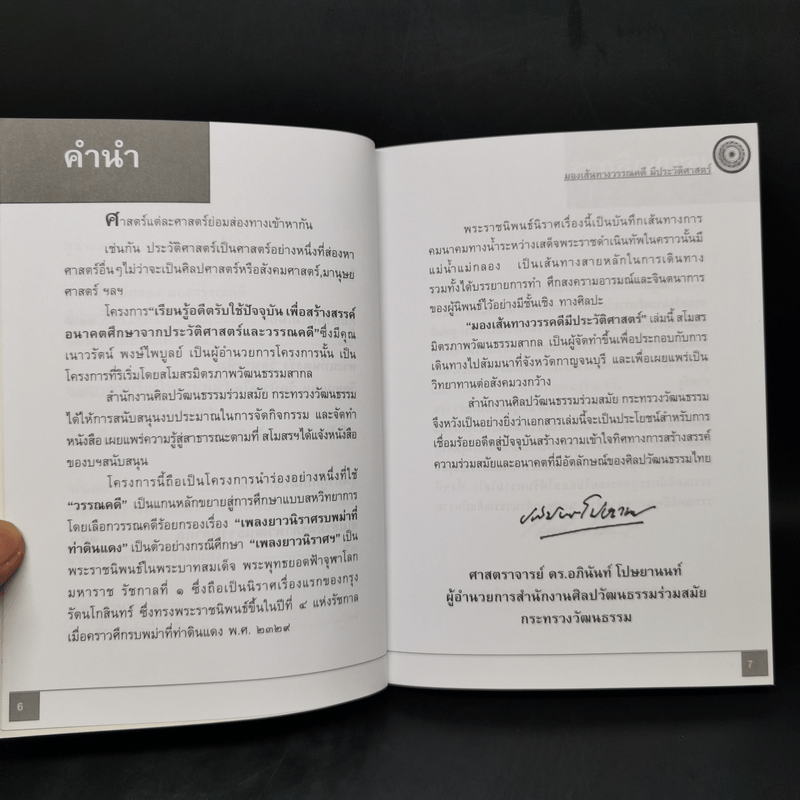 คำนำ
ศาสตร์แต่ละศาสตร์ย่อมส่องทางเข้าหากัน
เช่นกัน ประวัติศาสตร์เป็นศาสตร์อย่างหนึ่งที่ส่องหา
ศาสตร์อื่นๆไม่ว่าจะเป็นศิลปศาสตร์หรือสังคมศาสตร์,มานุษย
ศาสตร์ ฯลฯ
โครงการ“เรียนรู้อดีตรับใช้ปัจจุบัน เพื่อสร้างสรรค์
อนาคตศึกษาจากประวัติศาสตร์และวรรณคดี”ซึ่งมีคุณ
เนาวรัตน์ พงษ์ไพบูลย์ เป็นผู้อำนวยการโครงการนั้น เป็น
โครงการที่ริเริ่มโดยสโมสรมิตรภาพวัฒนธรรมสากล
สำนักงานศิลปวัฒนธรรมร่วมสมัย กระทรวงวัฒนธรรม
ได้ให้การสนับสนุนงบประมาณในการจัดกิจกรรม และจัดทำ
หนังสือ เผยแพร่ความรู้สู่สาธารณะตามที่ สโมสรฯได้แจ้งหนังสือ
ของบฯสนับสนุน
โครงการนี้ถือเป็นโครงการนำร่องอย่างหนึ่งที่ใช้
“วรรณคดี” เป็นแกนหลักขยายสู่การศึกษาแบบสหวิทยาการ
โดยเลือกวรรณคดีร้อยกรองเรื่อง “เพลงยาวนิราศรบพม่าที่
ท่าดินแดง” เป็นตัวอย่างกรณีศึกษา “เพลงยาวนิราศฯ” เป็น
พระราชนิพนธ์ในพระบาทสมเด็จ พระพุทธยอดฟ้าจุฬาโลก
มหาราช รัชกาลที่ ๑ ซึ่งถือเป็นนิราศเรื่องแรกของกรุง
รัตนโกสินทร์ ซึ่งทรงพระราชนิพนธ์ขึ้นในปีที่ ๔ แห่งรัชกาล
เมื่อคราวศึกรบพม่าที่ท่าดินแดง พ.ศ. ๒๓๒๙
6
มองเส้นทางวรรณคดี มีประวัติศาสตร์
พระราชนิพนธ์นิราศเรื่องนี้เป็นบันทึกเส้นทางการ
คมนาคมทางน้ำระหว่างเสด็จพระราชดำเนินทัพในคราวนั้นมี
แม่น้ำแม่กลอง เป็นเส้นทางสายหลักในการเดินทาง
รวมทั้งได้บรรยายการทำ ศึกสงครามอารมณ์และจินตนาการ
ของผู้นิพนธ์ไว้อย่างมีชั้นเชิง ทางศิลปะ
“มองเส้นทางวรรคดีมีประวัติศาสตร์” เล่มนี้ สโมสร
มิตรภาพวัฒนธรรมสากล เป็นผู้จัดทำขึ้นเพื่อประกอบกับการ
เดินทางไปสัมมนาที่จังหวัดกาญจนบุรี และเพื่อเผยแพร่เป็น
วิทยาทานต่อสังคมวงกว้าง
สำนักงานศิลปวัฒนธรรมร่วมสมัย กระทรวงวัฒนธรรม
จึงหวังเป็นอย่างยิ่งว่าเอกสารเล่มนี้จะเป็นประโยชน์สำหรับการ
เชื่อมร้อยอดีตสู่ปัจจุบันสร้างความเข้าใจทิศทางการสร้างสรรค์
ความร่วมสมัยและอนาคตที่มีอัตลักษณ์ของศิลปวัฒนธรรมไทย
ศาสตราจารย์ ดร.อภินันท์ โปษยานนท์
ผู้อำนวยการสำนักงานศิลปวัฒนธรรมร่วมสมัย
กระทรวงวัฒนธรรม
7